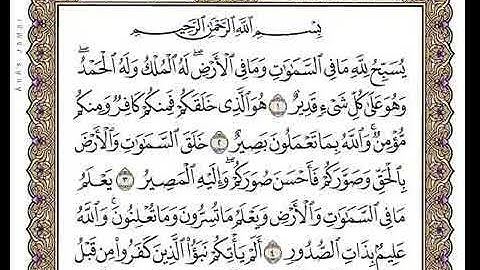 بِسْمِ اللَّهِ الرَّحْمَٰنِ الرَّحِيمِ
يُسَبِّحُ لِلَّهِ مَا فِي السَّمَاوَاتِ وَمَا فِي الْأَرْضِ ۖ لَهُ الْمُلْكُ وَلَهُ الْحَمْدُ ۖ
وَهُوَ عَلَىٰ كُلِّ شَيْءٍ قَدِيرٌ ١ هُوَ الَّذِي خَلَقَكُمْ فَمِنكُمْ كَافِرٌ وَمِنكُم
مُّؤْمِنٌ ۚ وَاللَّهُ بِمَا تَعْمَلُونَ بَصِيرٌ ٢ خَلَقَ السَّمَاوَاتِ وَالْأَرْضَ
بِالْحَقِّ وَصَوَّرَكُمْ فَأَحْسَنَ صُوَرَكُمْ ۖ وَإِلَيْهِ الْمَصِيرُ ٣ يَعْلَمُ
مَا فِي السَّمَاوَاتِ وَالْأَرْضِ وَيَعْلَمُ مَا تُسِرُّونَ وَمَا تُعْلِنُونَ ۚ وَاللَّهُ
عَلِيمٌ بِذَاتِ الصُّدُورِ ٤ أَلَمْ يَأْتِكُمْ نَبَأُ الَّذِينَ كَفَرُوا مِن قَبْلُ